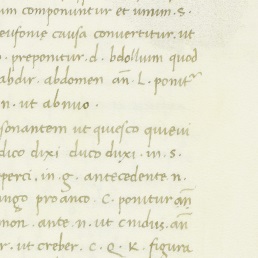 um componuntur et unum. s.
eufonie causa convertitur. ut
o. preponitur. d. bdollum quod
abdir. abdomen añ. L. ponit^r
n. ut abnuo.
sonantem ut quiesco quievi
dico dixi duco duxi. in. s.
perci, in. g. antecedente n.
ango pro anco. C. ponitur añ
mon. ante. n. ut cnidus. añ
r. ut creber. C. Q. K. figura